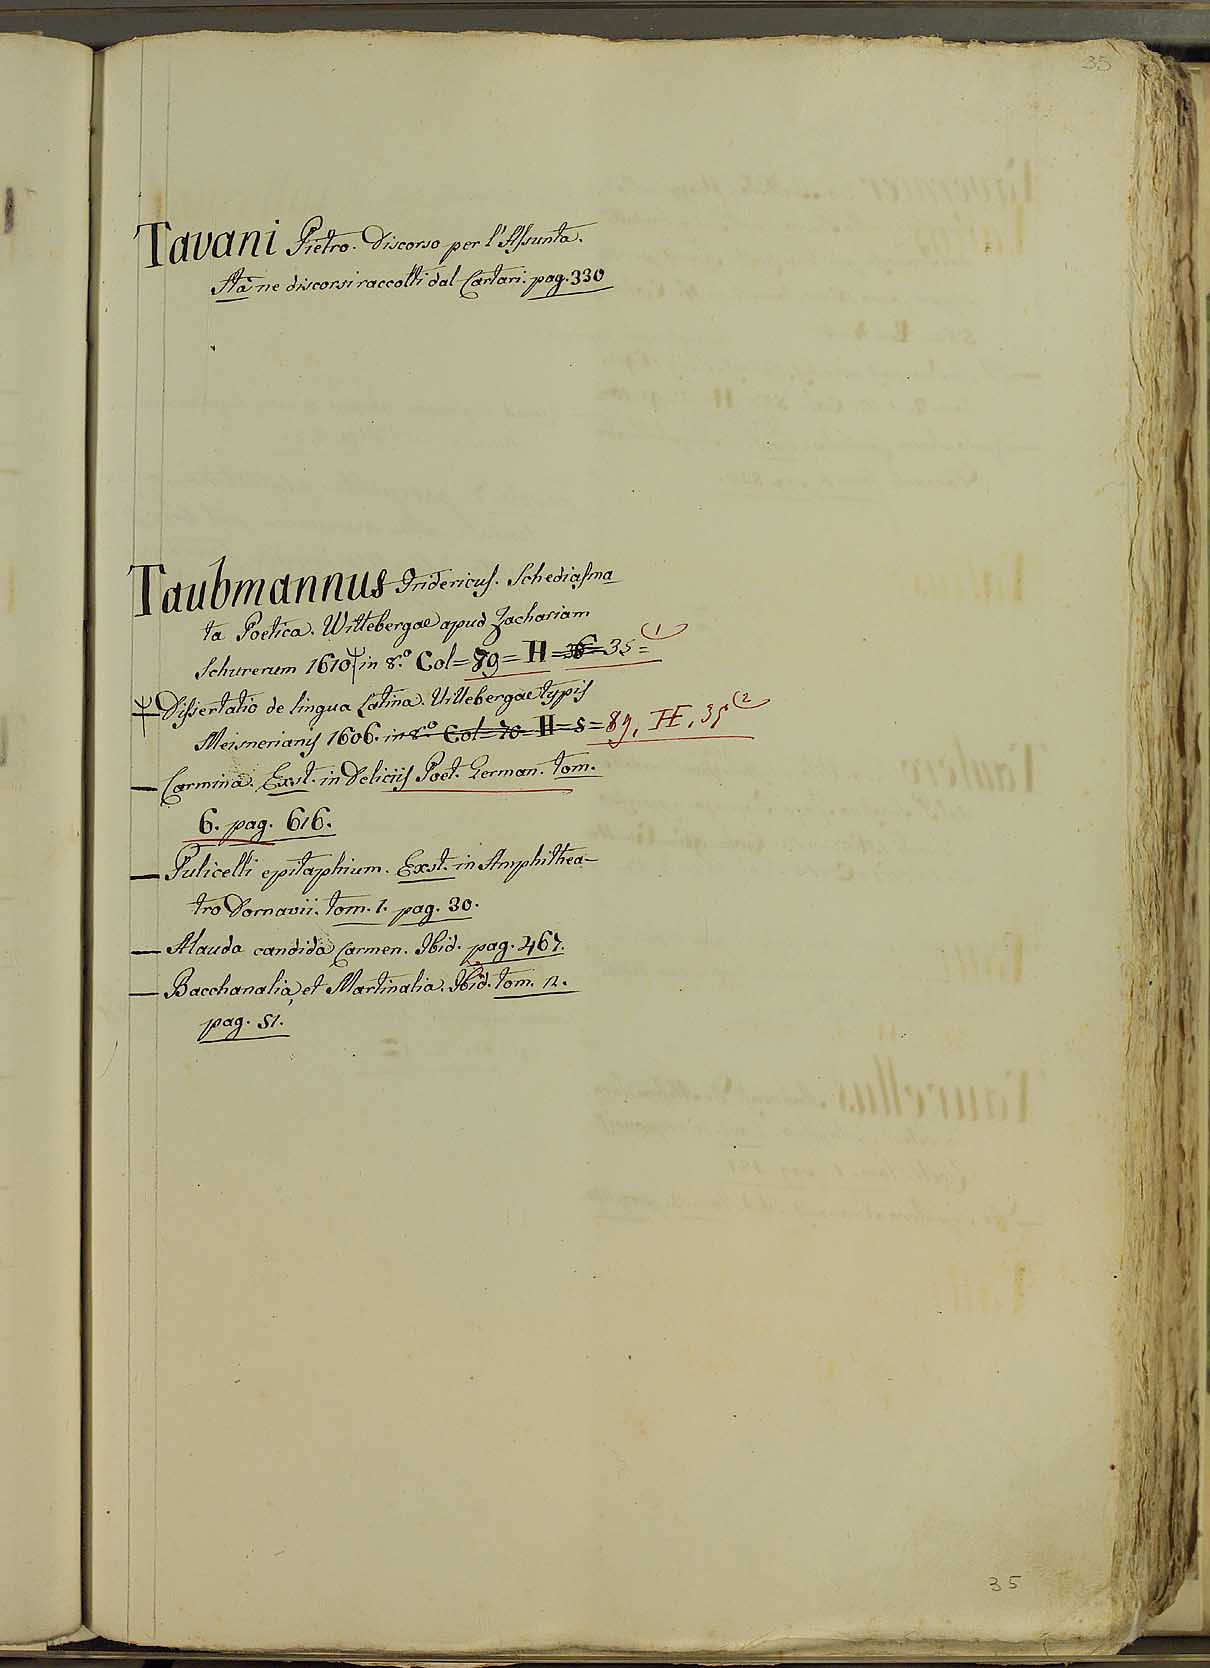 35
Tavani Pietro. Discorso per l'Assunta.
Sta ne discorsi raccolti dal Cartari. pag. 330
Taubmannus Fridericus. Schediasma
ta Poetica. Wittebergae apud Zachariam
Schurerum 1610. in 8.º Col=89=H=36=35= (1
Dissertatio de lingua Latina. Uittebergae typis
Meisnerianis 1606. in 8.º Col=70=H=8=89, H, 35 (2
— Carmina. Exst. in Deliciis Poet. German. tom.
6. pag. 616.
— Pulicelli epitaphium. Exst. in Amphithea-
tro Dornavii. tom. 1. pag. 30.
— Alauda candida Carmen. Ibid. pag. 467.
— Bacchanalia, et Martinalia. Ibid. tom. 2.
pag. 51.
35